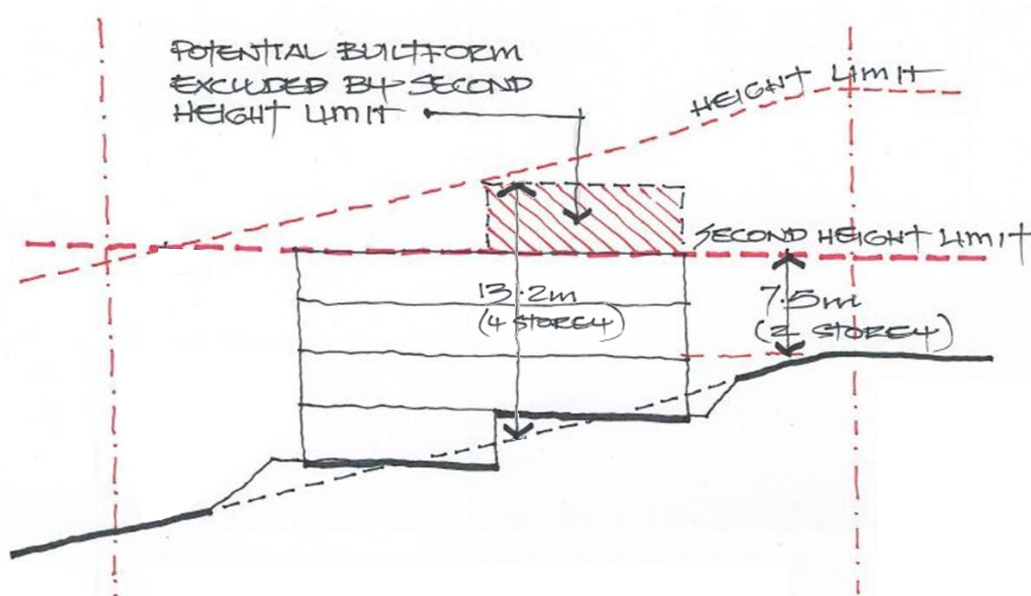 POTENTIAL BUILTFORM
EXCLUDED BY SECOND
HEIGHT LIMIT
HEIGHT LIMIT
SECOND HEIGHT LIMIT
13.2m
(4 STOREY)
7.5m
(2 STOREY)